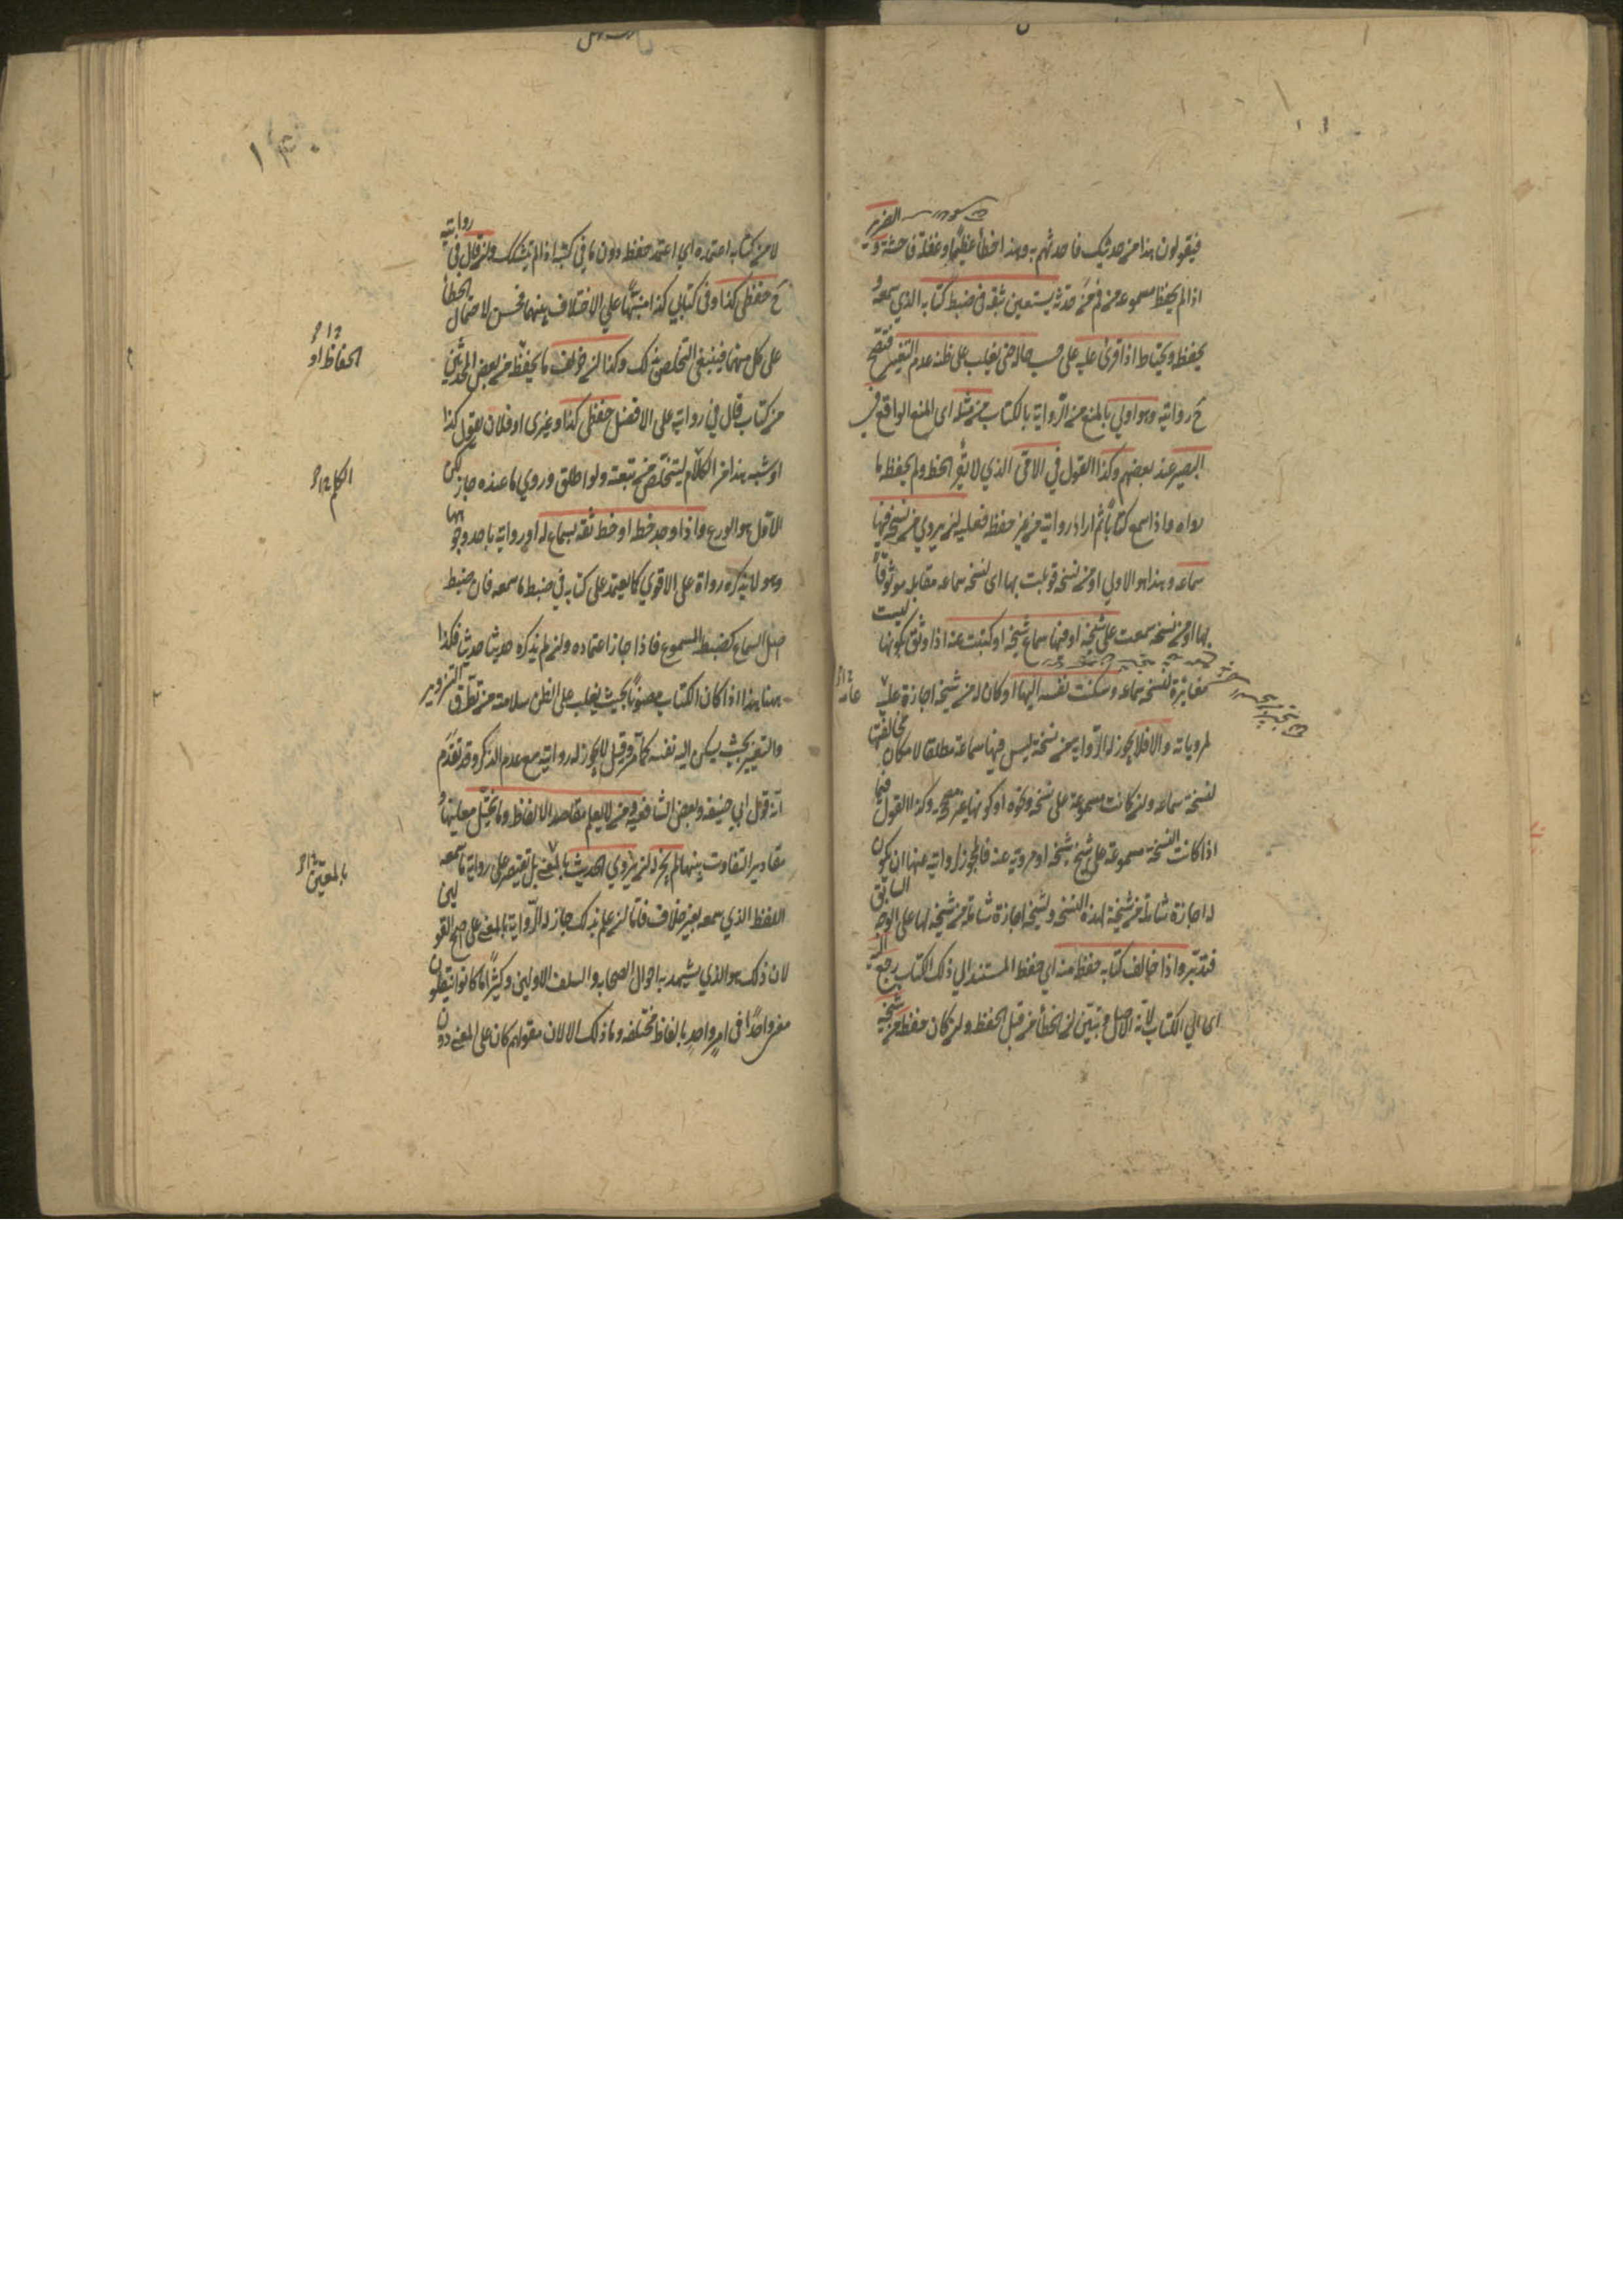 فيقولون هذا من حديثك فاحدثهم به وهذا خطأ عظيم او غفلة فاحشة و الضرير
اذا لم يحفظ مسموعه من فم من حدثه يستعين بثقة في ضبط كتابه الذي سمعه و
يحفظه ويحتاط اذا قرئ عليه على حسب حاله حتى يغلب على ظنه عدم التغيير فتصح
ح روايته وهو اولي بالمنع من الرواية بالكتاب من مثله اى المنع الواقع في
البصير عند بعضهم وكذا القول في الامي الذي لا يقرأ الخط ولم يحفظ ما
رواه واذا سمع كتابًا ثم اراد روايته من غير حفظ فعليه ان يروي من نسخة فيها
سماعه وهذا هو الاولي او من نسخة قوبلت بها اى نسخة سماعه مقابلة موثوقًا
بها او من نسخة سمعت على شيخه او فيها سماع شيخه او كتبت عنه اذا وثق بكونها ليست
مغايرة لنسخة سماعه وسكنت نفسه اليها او كان له من شيخه اجازة عامة
لمروياته والا فلا يجوز له الرواية من نسخة ليس فيها سماعه مطلقا لامكان مخالفتها
لنسخة سماعه وان كانت مسموعة على شيخه ونحوه او كونها غير مصححة وكذا القول فيما
اذا كانت النسخة مسموعة على شيخ شيخه او مروية عنه فالمجوز لروايته عنها ان يكون
له اجازة شاملة من شيخه لهذه النسخة ولشيخه اجازة شاملة من شيخه لها على الوجه السابق
فتدبر واذا خالف كتابه حفظه منه اي حفظه المستند الي ذلك الكتاب رجع اليه
اى الي الكتاب لانه الاصل وتبين ان الخطأ من قبل الحفظ وان كان حفظه من شيخه
١٣٠
لا من كتابه اعتمده اي اعتمد حفظه دون ما في كتبه اذا لم يتشكك وان قال في روايته
ح حفظي كذا وفي كتابي كذا منبهًا علي الاختلاف بينهما فحسن لاحتمال الخطأ
على كل منهما فينبغي التخلص بذلك وكذا ان خولف ما يحفظه من بعض المحدثين
الحفاظ او
من كتاب قال في روايته على الافضل حفظي كذا وغيري او فلان يقول كذا
او شبه هذا من الكلام ليتخلص من تبعته ولو اطلق وروي ما عنده جاز لكن
الكلم
الاول هو الورع واذا وجد خطه او خط ثقة بسماع له او رواية باحد وجوهها
وهو لا يذكره رواه على الاقوي كما يعتمد على كتابه في ضبط ما سمعه فان ضبط
اصل السماع كضبط المسموع فاذا جاز اعتماده وان لم يذكره حديثا حديثا فكذا
ههنا هذا اذا كان الكتاب مصونًا بحيث يغلب على الظن سلامته من تطرق التزوير
والتغيير بحيث يسكن اليه نفسه كما مر وقيل لا يجوز له روايته مع عدم الذكر وقد تقدم
انه قول ابي حنيفة وبعض الشافعية ومن لا يعلم مقاصد الالفاظ وما يحيل معانيها و
مقادير التفاوت بينها لم يجز له ان يروي الحديث بالمعنى بل يقتصر على رواية ما سمعه
اللفظ الذي سمعه بغير خلاف فاما ان علم بذلك جاز له الرواية بالمعنى على اصح القولين
لان ذلك هو الذي يشهد به احوال الصحابة والسلف الاولين وكثيرًا ما كانوا ينقلون
معنى واحدًا في امر واحد بالفاظ مختلفة وما ذلك الا لان معولهم كان على المعنى دون